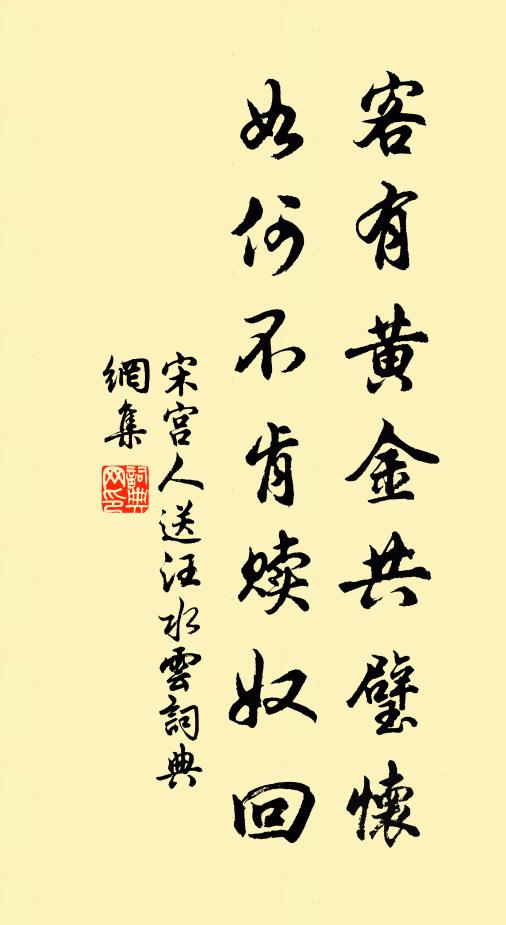 客有黄金共璧懷
如何不肯赎奴回
宋宫人送汪水雲詞典
網集
詞典网印